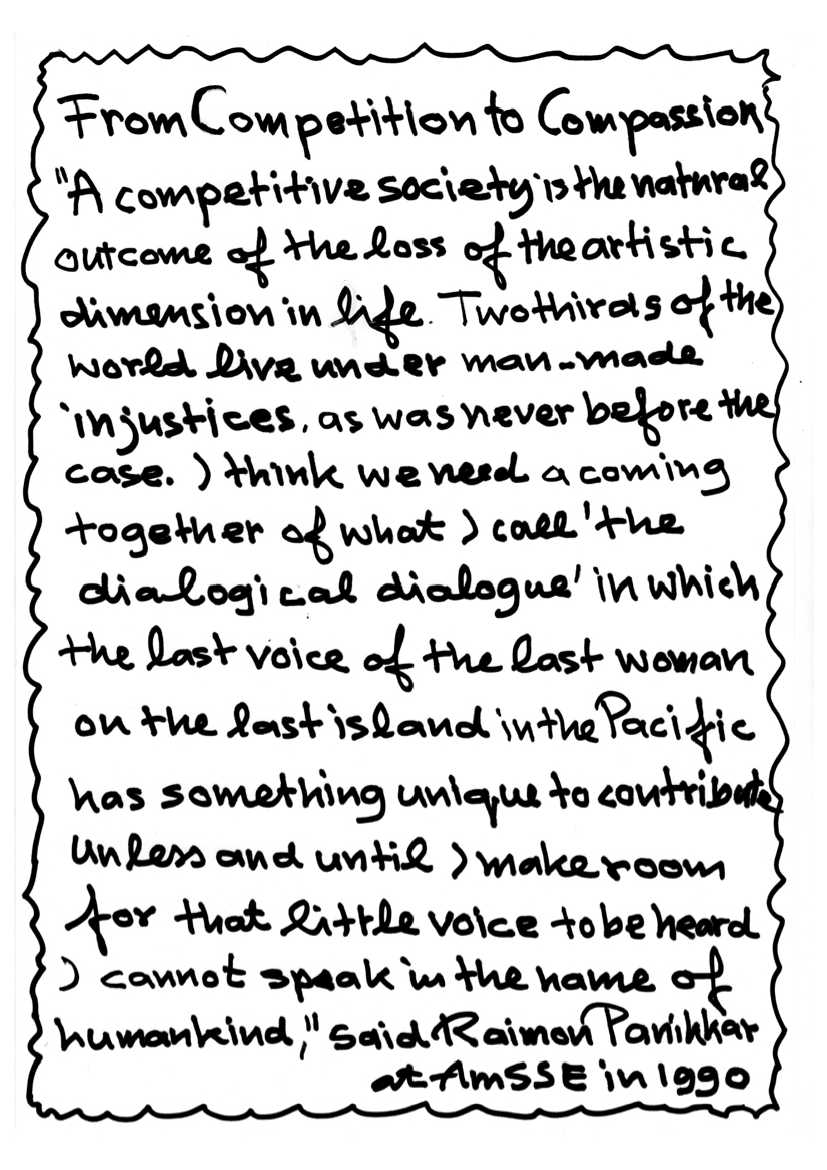 From Competition to Compassion
"A competitive society is the natural
outcome of the loss of the artistic
dimension in life. Two thirds of the
world live under man-made
injustices, as was never before the
case. I think we need a coming
together of what I call 'the
dialogical dialogue' in which
the last voice of the last woman
on the last island in the Pacific
has something unique to contribute
Unless and until I make room
for that little voice to be heard
I cannot speak in the name of
humankind," said Raimon Panikkar
at AmSSE in 1990